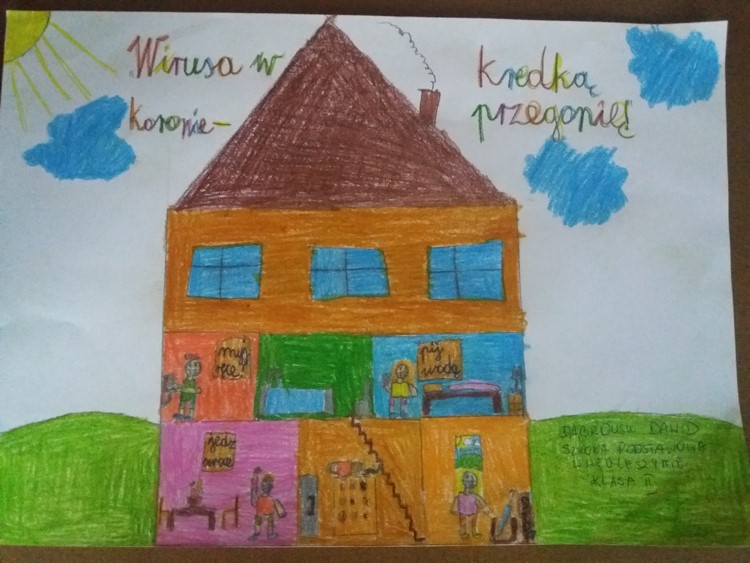 Wirusa w
koronie -
kredką
przegonię!
myj
ręce
pij
wodę
jedz
owoce
DĄBROWSKI DAWID
SZKOŁA PODSTAWOWA
KLASA II